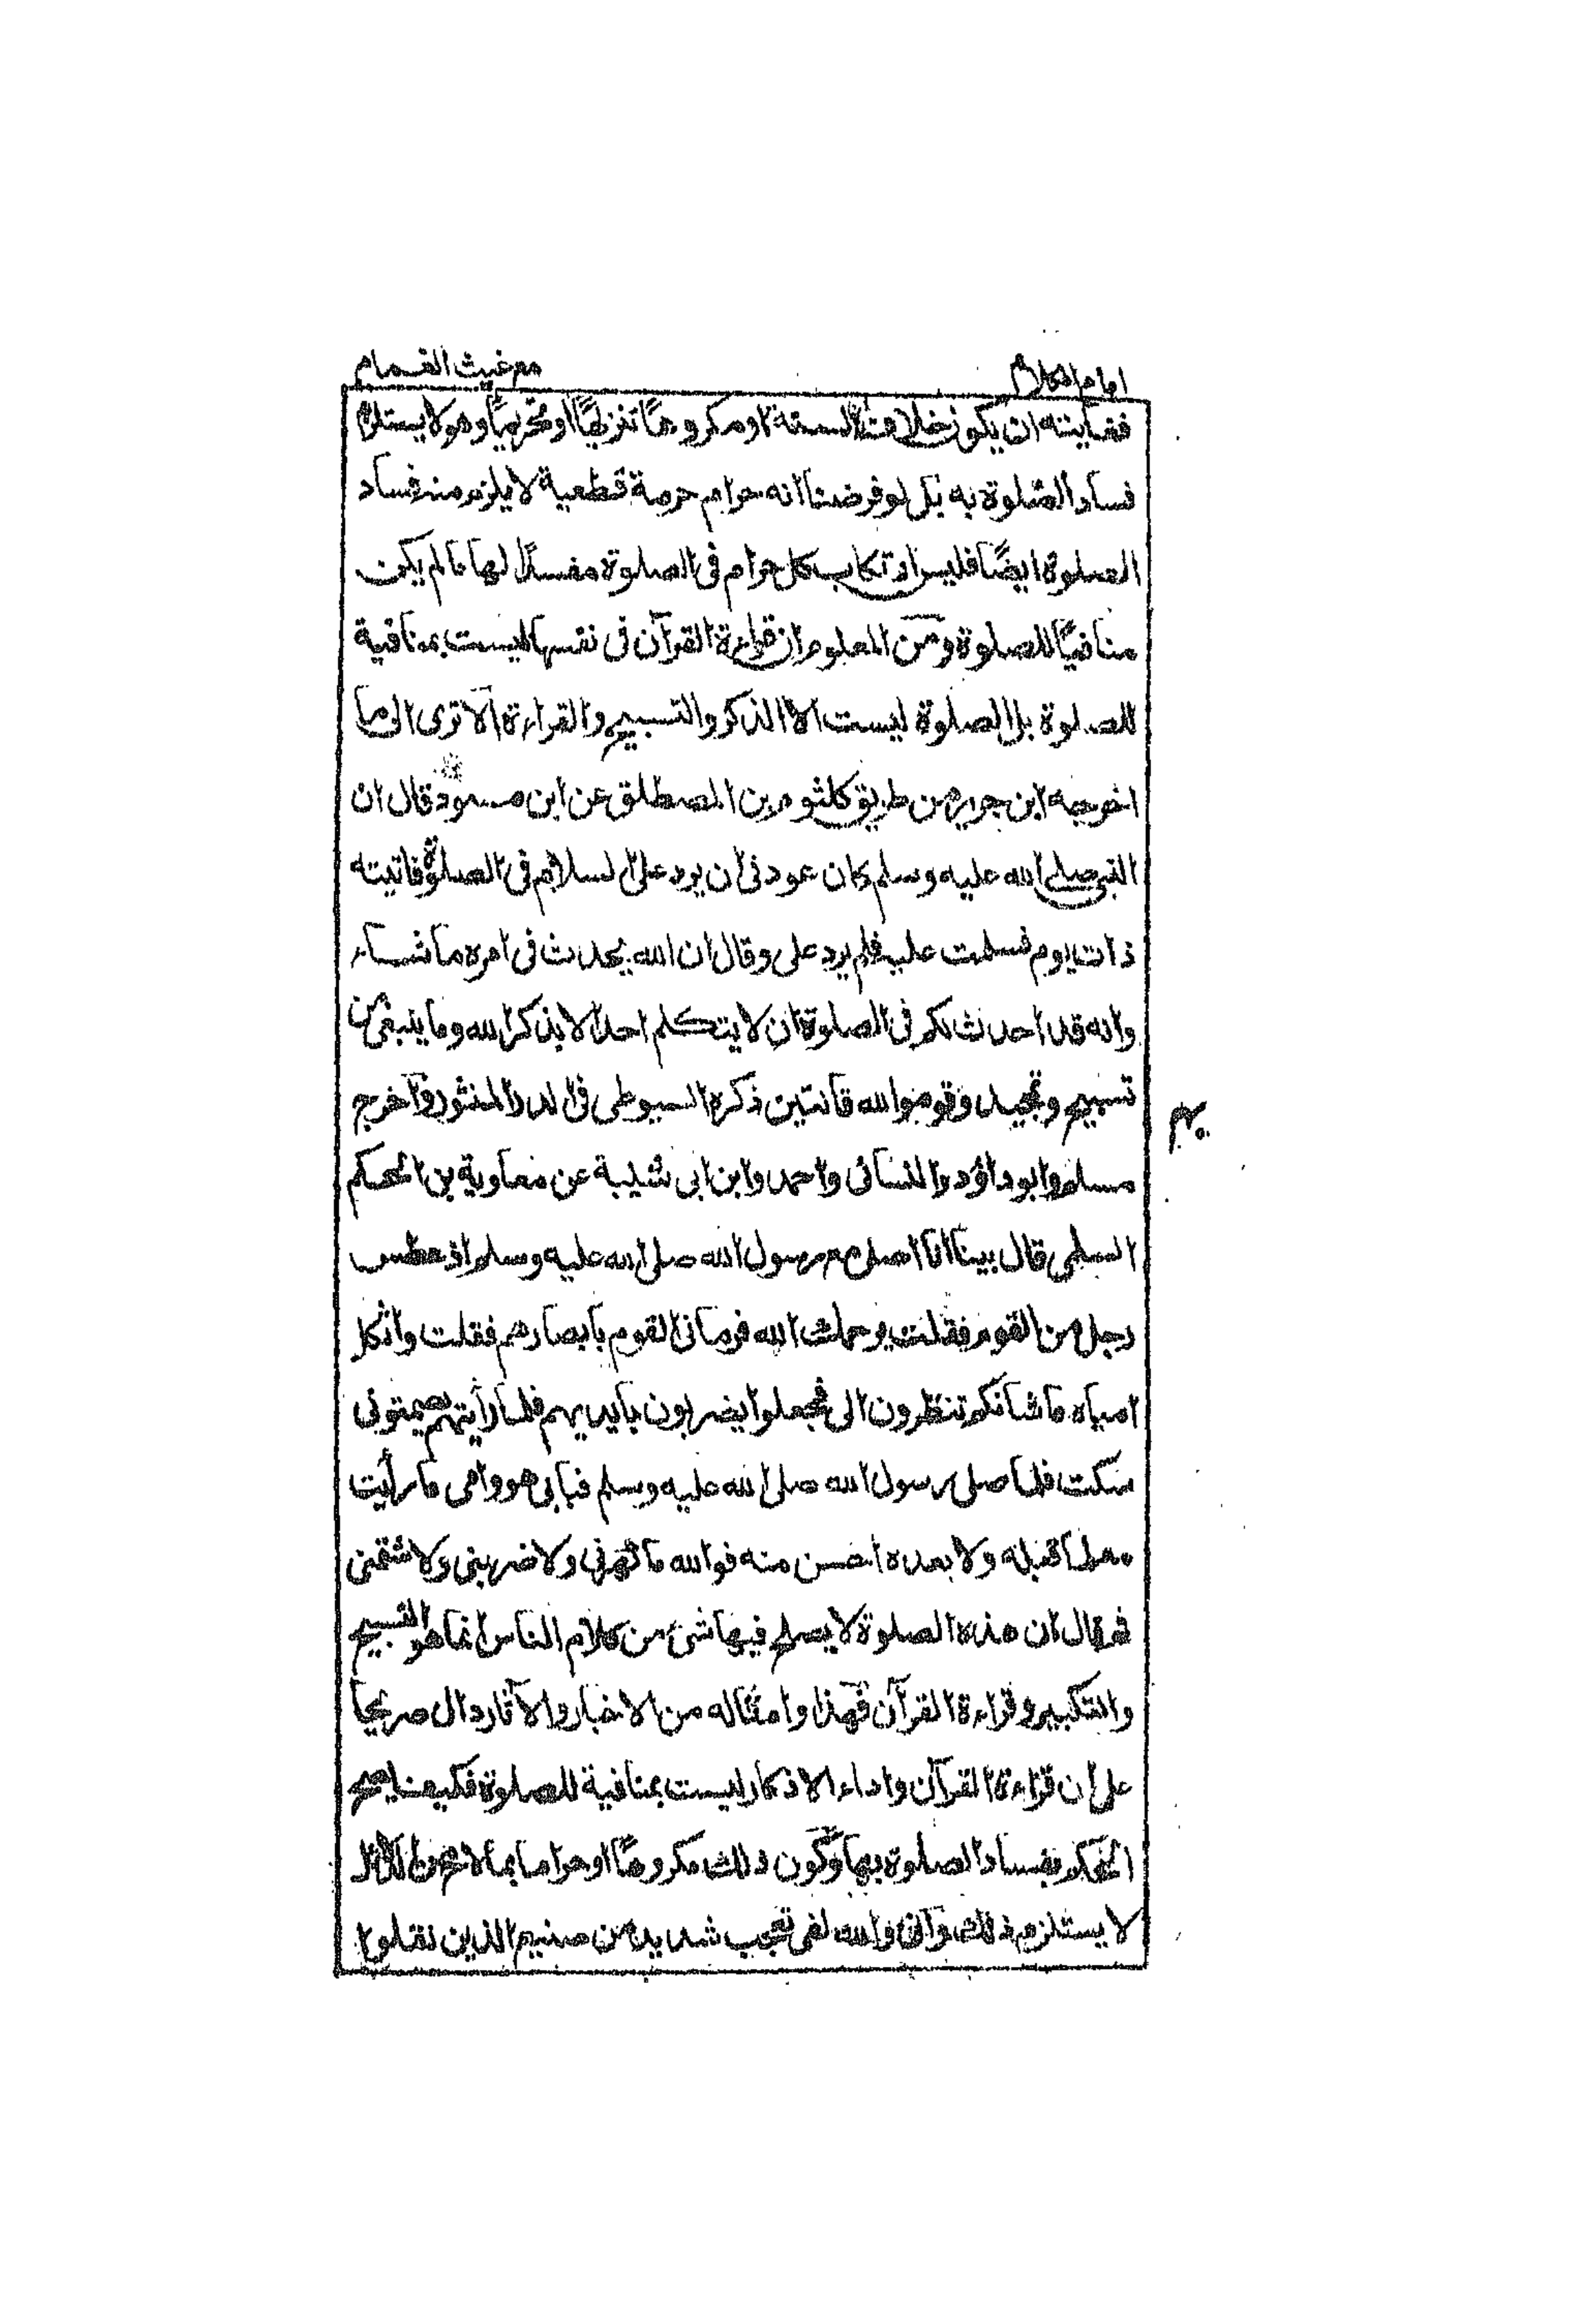 امام الکلام
مع غیث الغمام
فغایته ان یکون خلاف السنة او مکروهًا تنزیهیًا او تحریمیًا وهو لا یستلزم
فساد الصلوة به بل لو فرضنا انه حرام حرمة قطعیة لا یلزم منه فساد
الصلوة ایضًا فلیس ارتکاب کل حرام فی الصلوة مفسدًا لها ما لم یکن
منافیًا للصلوة ومن المعلوم ان قراءة القرآن فی نفسها لیست بمنافیة
للصلوة بل الصلوة لیست الا الذکر والتسبیح والقراءة الا تری الی ما
اخرجه ابن جریر من طریق کلثوم بن المصطلق عن ابن مسعود قال ان
النبی صلی الله علیه وسلم کان عودنی ان یرد علی السلام فی الصلوة فاتیته
ذات یوم فسلمت علیه فلم یرد علی وقال ان الله یحدث فی امره ما شاء
وانه قد احدث لکم فی الصلوة ان لا یتکلم احد الا بذکر الله وما ینبغی من
تسبیح وتمجید وقوموا لله قانتین ذکره السیوطی فی الدر المنثور واخرج
مسلم وابو داؤد والنسائی واحمد وابن ابی شیبة عن معاویة بن الحکم
السلمی قال بینا انا اصلی مع رسول الله صلی الله علیه وسلم اذ عطس
رجل من القوم فقلت یرحمک الله فرمانی القوم بابصارهم فقلت واثکل
امیاه ما شانکم تنظرون الی فجعلوا یضربون بایدیهم فلما رأیتهم یصمتونی
سکت فلما صلی رسول الله صلی الله علیه وسلم فبابی هو وامی ما رأیت
معلما قبله ولا بعده احسن منه فوالله ما نهرنی ولا ضربنی ولا شتمنی
ثم قال ان هذه الصلوة لا یصلح فیها شئ من کلام الناس انما هو التسبیح
والتکبیر وقراءة القرآن فهذا وامثاله من الاخبار والآثار دال صریحا
علی ان قراءة القرآن واداء الاذکار لیست بمنافیة للصلوة فکیف یصح
الحکم بفساد الصلوة بها وکون ذلک مکروهًا او حراما بما لاح من الدلائل
لا یستلزم ذلک وانی والله لفی تعجب شدید من صنیع الذین نقلوا